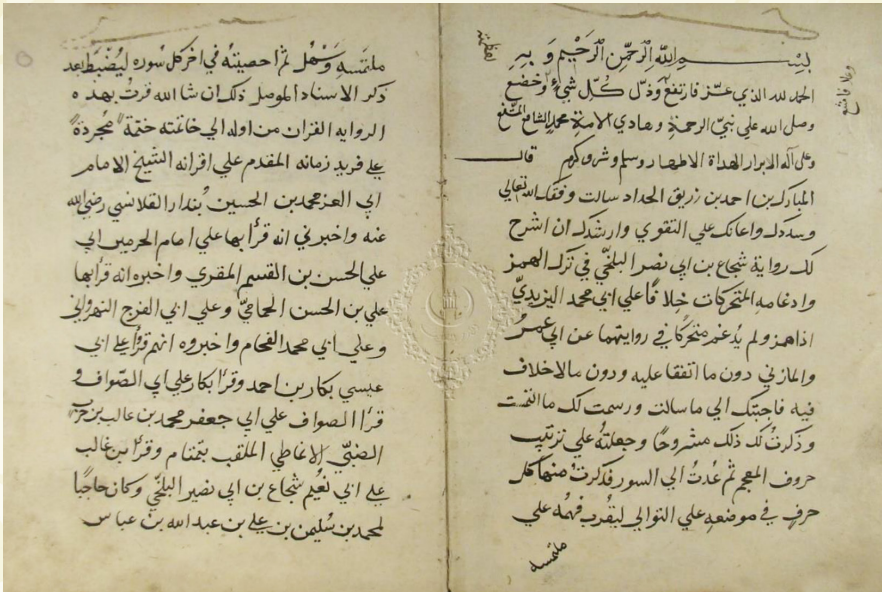 بسم الله الرحمن الرحيم وبه
الحمد لله الذي عز فارتفع وذل كل شيء وخضع
وصل الله علي نبي الرحمة وهادي الامة محمد الشافع المشفع
وعلي آله الابرار الهداة الاطهار وسلم وشرف وكرم قال
المبارك بن احمد بن زريق الحداد سالت وفقك الله تعالي
وسددك واعانك علي التقوي وارشدك ان اشرح
لك رواية شجاع بن ابي نصر البلخي في ترك الهمز
وادغامه المتحركات خلافا علي ابي محمد اليزيدي
اذا همز ولم يدغم متحركا في روايتهما عن ابي عمر
والمازني دون ما اتفقا عليه ودون مالا خلاف
فيه فاجبتك الي ما سالت ورسمت لك ما التمست
وذكرت لك ذلك مشروحا وجعلته علي ترتيب
حروف المعجم ثم عدت الي السور فذكرت منها كل
حرف في موضعه علي التوالي ليقرب فهمه علي
ملتمسه
ملتمسه وسهل ثم احصيته في اخر كل سوره ليضبط بعد
ذكر الاسناد الموصل ذلك ان شا الله قرت بهذه
الروايه القران من اوله الي خاتمته ختمة مجردة
علي فريد زمانه المقدم علي اقرانه الشيخ الامام
ابي العز محمد بن الحسين بندار القلانسي رضي الله
عنه واخبرني انه قرا بها علي امام الحرمين ابي
علي الحسن بن القسم المقري واخبره انه قرا بها
علي بن الحسن الحمامي وعلي ابي الفرج النهرواني
وعلي ابي محمد الفحام واخبروه انهم قرؤا علي ابي
عيسي بكار بن احمد وقرا بكار علي ابي الصواف و
قرا الصواف علي ابي جعفر محمد بن غالب بن حرب
الضبي الانماطي الملقب بتمتام وقرا بن غالب
علي ابي نعيم شجاع بن ابي نصر البلخي وكان حاجبا
لمحمد بن سليمن بن علي بن عبد الله بن عباس